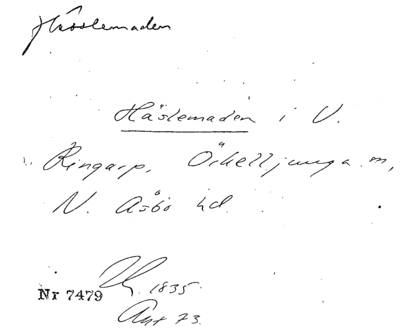 Hässlemaden
Häslemaden i V.
Ringarp, Örkelljunga m,
N. Åsbo hd.
1835.
Nr 7479
Ant 73.